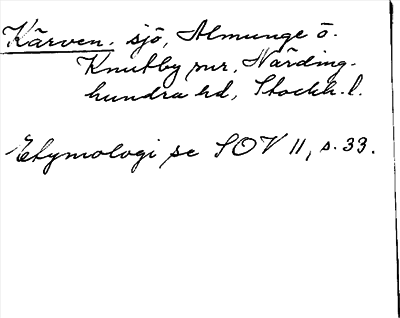 Kärven. sjö, Almunge o.
Knutby snr, Närding-
hundra hd, Stockh. l.
Etymologi se SOV 11, s. 33.